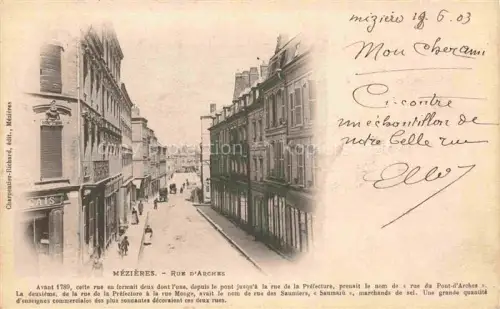 mizière 19_6_03
Mon cher ami
Ci contre
un echantillon de
notre belle rue
Charpentier-Richard, édit., Mézières
AIS
MÉZIÈRES. — RUE D'ARCHES
Avant 1789, cette rue en formait deux dont l'une, depuis le pont jusqu'à la rue de la Préfecture, prenait le nom de « rue du Pont-d'Arches ».
La deuxième, de la rue de la Préfecture à la rue Monge, avait le nom de rue des Sauniers, « Saunuarii », marchands de sel. Une grande quantité
d'enseignes commerciales des plus tonnantes décoraient ces deux rues.